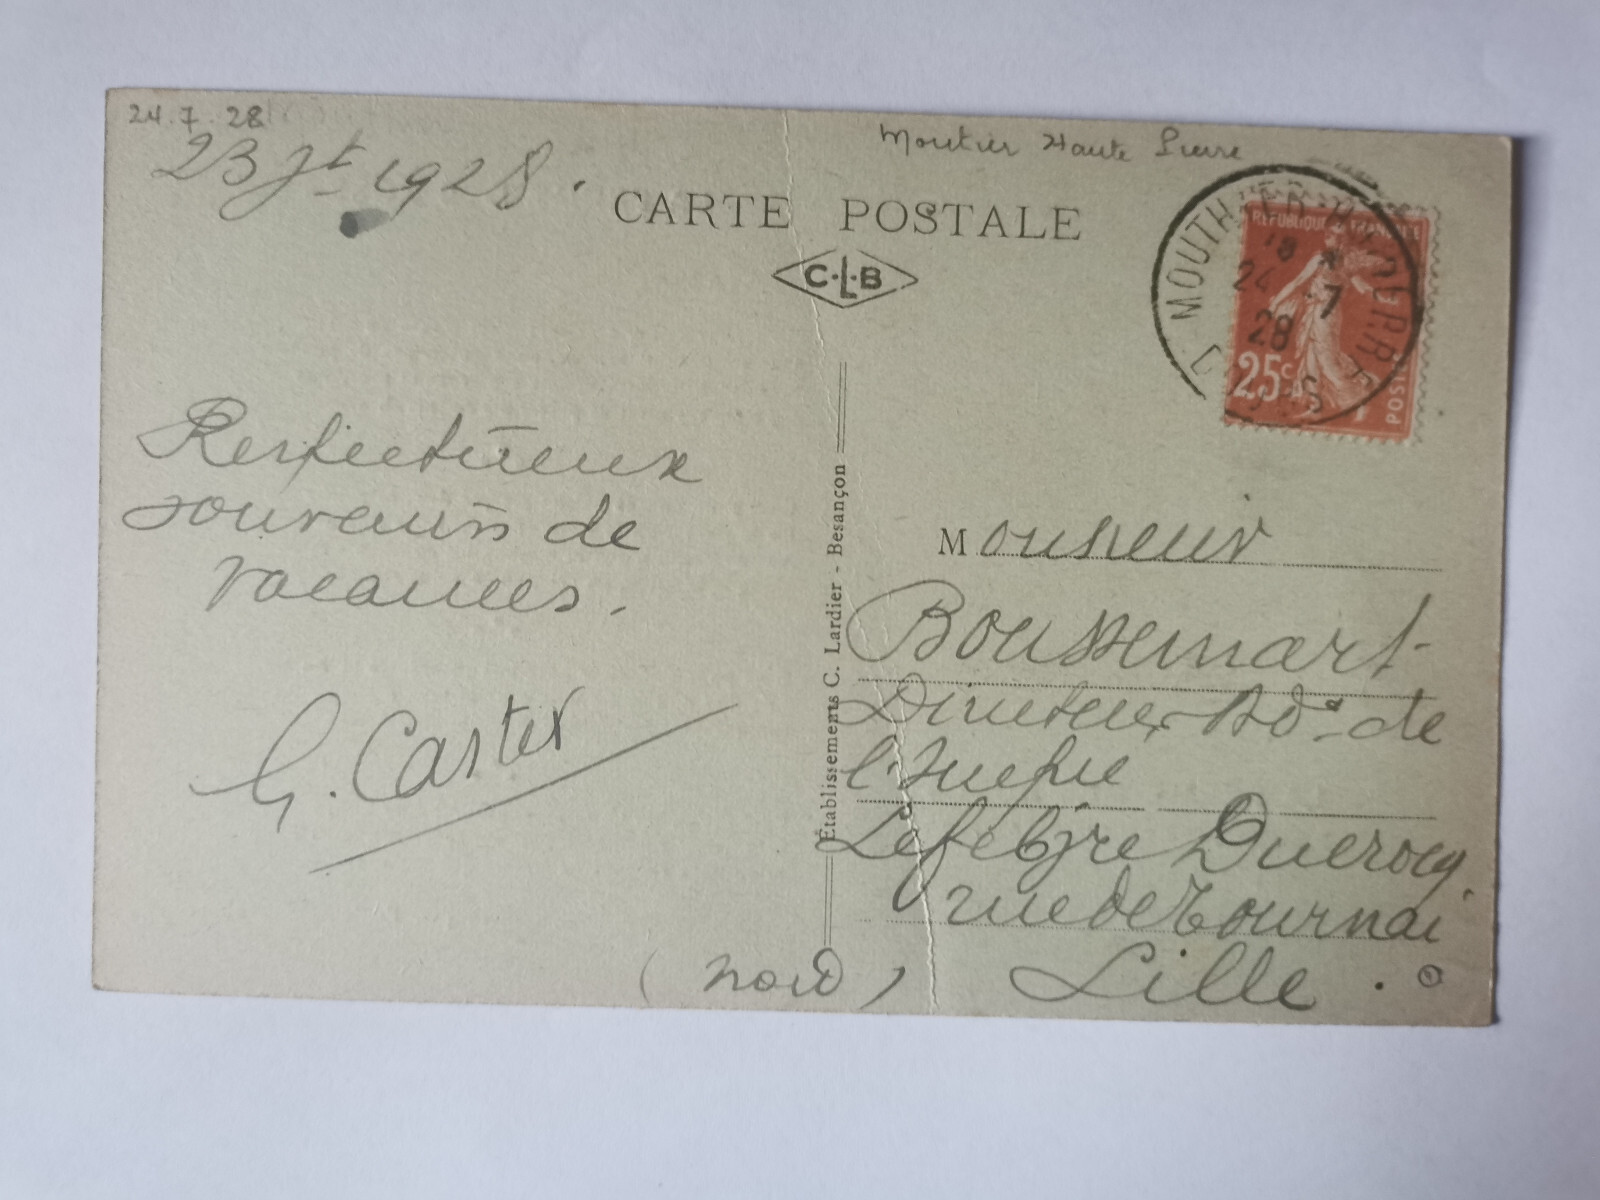 24.7.28
23 Jt 1928.
Moutier Haute Pierre
CARTE POSTALE
C·L·B
MOUTHIER-Hte-PIERRE
18
24 -7
28
DOUBS
REPUBLIQUE FRANÇAISE
25c
POSTES
Respectueux
souvenirs de
vacances.
G. Caster
Établissements C. Lardier - Besançon
Monsieur
Boussemart
Directeur Ad. de
Lefebvre Ducrocq.
rue de Tournai
Lille.
(Nord)